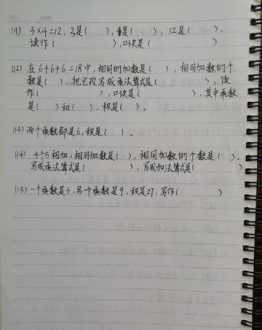 (11) 3×4=12, 3是( ), 4是( ), 12是( ),
读作( ), 口诀是( )
(12) 在6+6+6=18中, 相同的加数是( ), 相同加数的个
数是( ), 把它改写成乘法算式是( ), 读
作( ), 口诀是( ), 其中乘数
是( )和( ), 积是( )。
(13) 两个乘数都是6, 积是( )。
(14) 4个5相加, 相同加数是( ), 相同加数的个数是( ),
写成乘法算式是( ), 写成加法算式是( )
(15) 一个乘数是3, 另一个乘数是9, 积是27, 写作( )